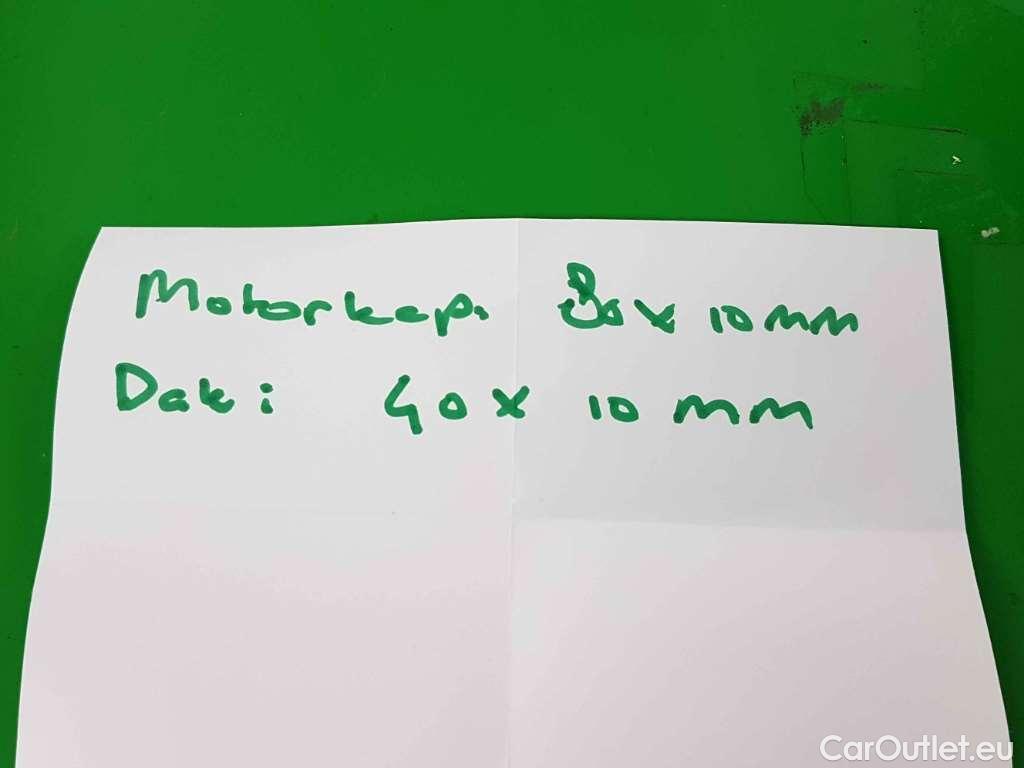 Motorkap: 30 x 10 mm
Dak: 40 x 10 mm
CarOutlet.eu